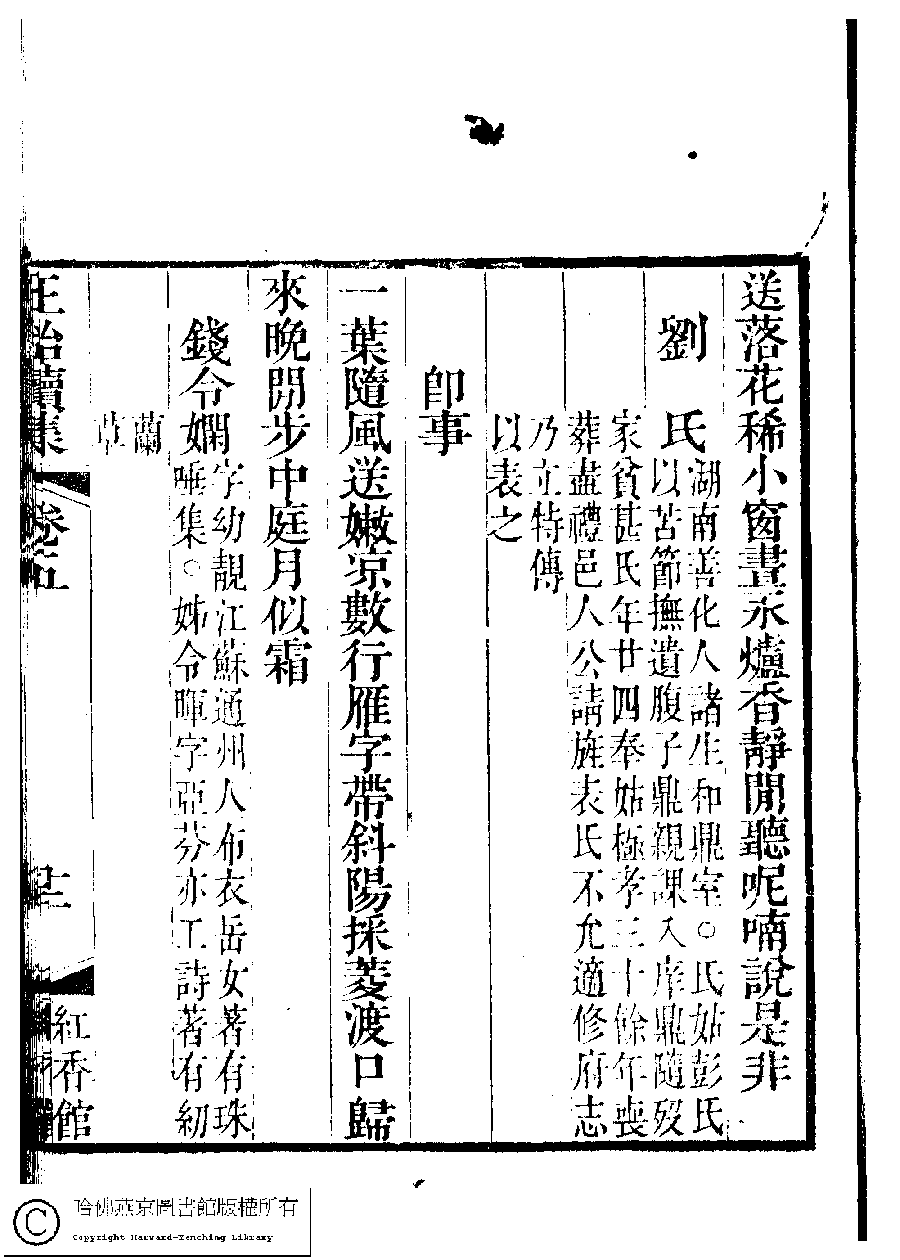 送落花稀小窗晝永爐香靜閒聽呢喃說是非
劉氏
湖南善化人諸生和鼎室○氏姑彭氏
以苦節撫遺腹子鼎親課入庠鼎隨歿
家貧甚氏年廿四奉姑極孝三十餘年喪
葬盡禮邑人公請旌表氏不允適修府志
乃立特傳
以表之
卽事
一葉隨風送嫩凉數行雁字帶斜陽採菱渡口歸
來晚閒步中庭月似霜
錢令嫻
字幼靚江蘇通州人布衣岳女著有珠
唾集○姊令暉字亞芬亦工詩著有紉
蘭
草
正始續集
卷五
廿二
紅香館
哈佛燕京圖書館版權所有
Copyright Harvard-Yenching Library